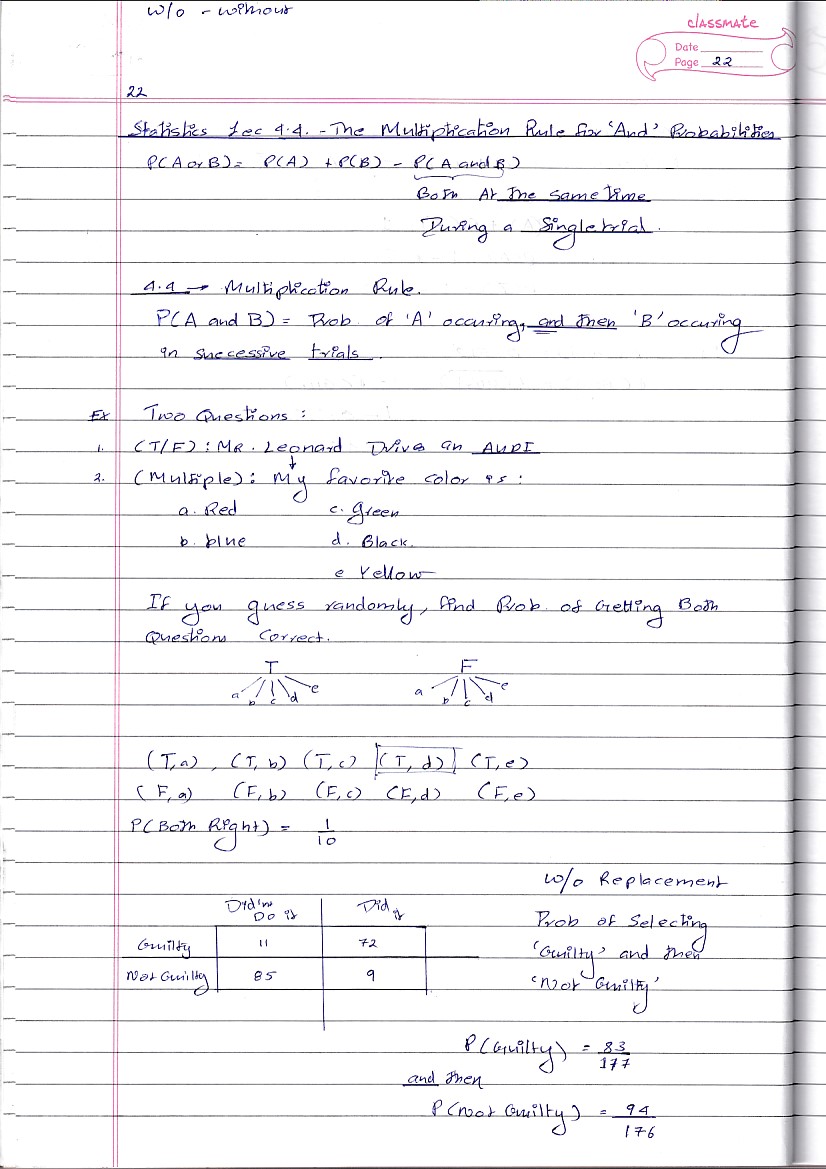 w/o - without
classmate
Date
Page 22
22
Statistics Lec 4.4. - The Multiplication Rule for 'And' Probabilities
P(A or B) = P(A) + P(B) - P(A and B)
Both At the same time
During a Single trial.
4.4 → Multiplication Rule.
P(A and B) = Prob. of 'A' occuring, and then 'B' occuring
in successive trials.
Ex Two Questions :
1. (T/F) : MR. Leonard Drives an AUDI
2. (Multiple) : My favorite color is :
a. Red c. Green
b. blue d. Black.
e Yellow
If you guess randomly, find Prob. of Getting Both
Questions Correct.
T F
a b c d e a b c d e
(T,a), (T,b) (T,c) (T,d) (T,e)
(F,a) (F,b) (F,c) (F,d) (F,e)
P(Both Right) = 1/10
w/o Replacement
Didn't Do it Did it
Prob of Selecting
Guilty 11 72
'Guilty' and then
Not Guilty 85 9
'Not Guilty'
P(Guilty) = 83/177
and then
P(not Guilty) = 94/176